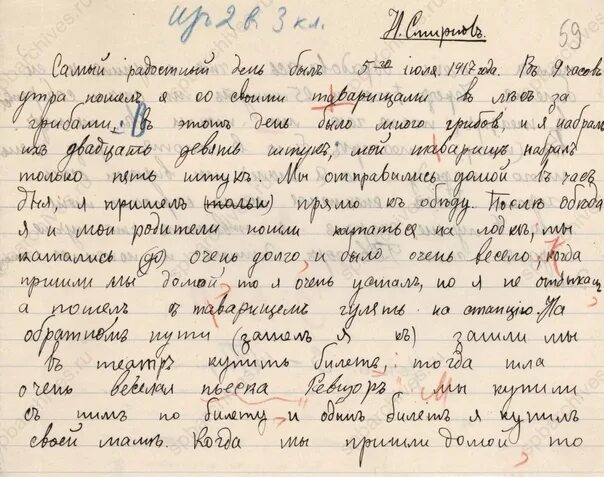 изъ 2 в 3 кл.
Н. Смирновъ.
59
Самый радостный день былъ 5-го июля 1917 года. Въ 9 часовъ
утра пошелъ я со своими таварищами в лѣсъ за
грибами. Въ этотъ день было много грибов и я набралъ
ихъ двадцать девять штукъ, мой таварищъ набралъ
только пять штукъ. Мы отправились домой въ часъ
дня я пришелъ (только) прямо къ обѣду. Послѣ обѣда
я и мои родители пошли кататься на лодкѣ, мы
катались (до) очень долго, и было очень весело, когда
пришли мы домой, то я очень усталъ, но я не отдыхалъ
а пошелъ съ таварищемъ гулять на станцію. На
обратномъ пути (зашелъ я къ) зашли мы
въ театръ купить билетъ: тогда шла
очень веселая пьеса Ревизоръ. Мы купили
съ нимъ по билету и одинъ билетъ я купилъ
своей мамѣ. Когда мы пришли домой, то